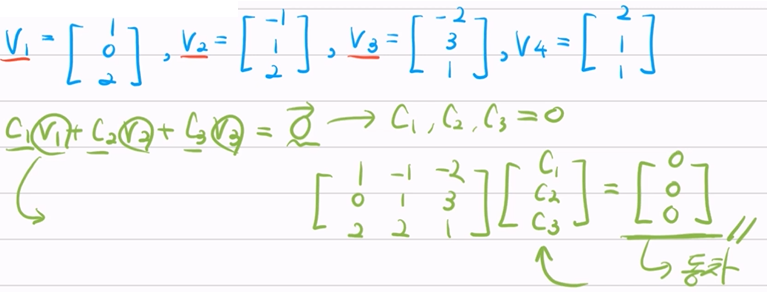 V₁ = [1 0 2], V₂ = [-1 1 2], V₃ = [-2 3 1], V₄ = [2 1 1]
C₁V₁ + C₂V₂ + C₃V₃ = 0⃗ → C₁, C₂, C₃ = 0
[1 -1 -2
0 1 3
2 2 1] [C₁ C₂ C₃] = [0 0 0] //
↳ 동차